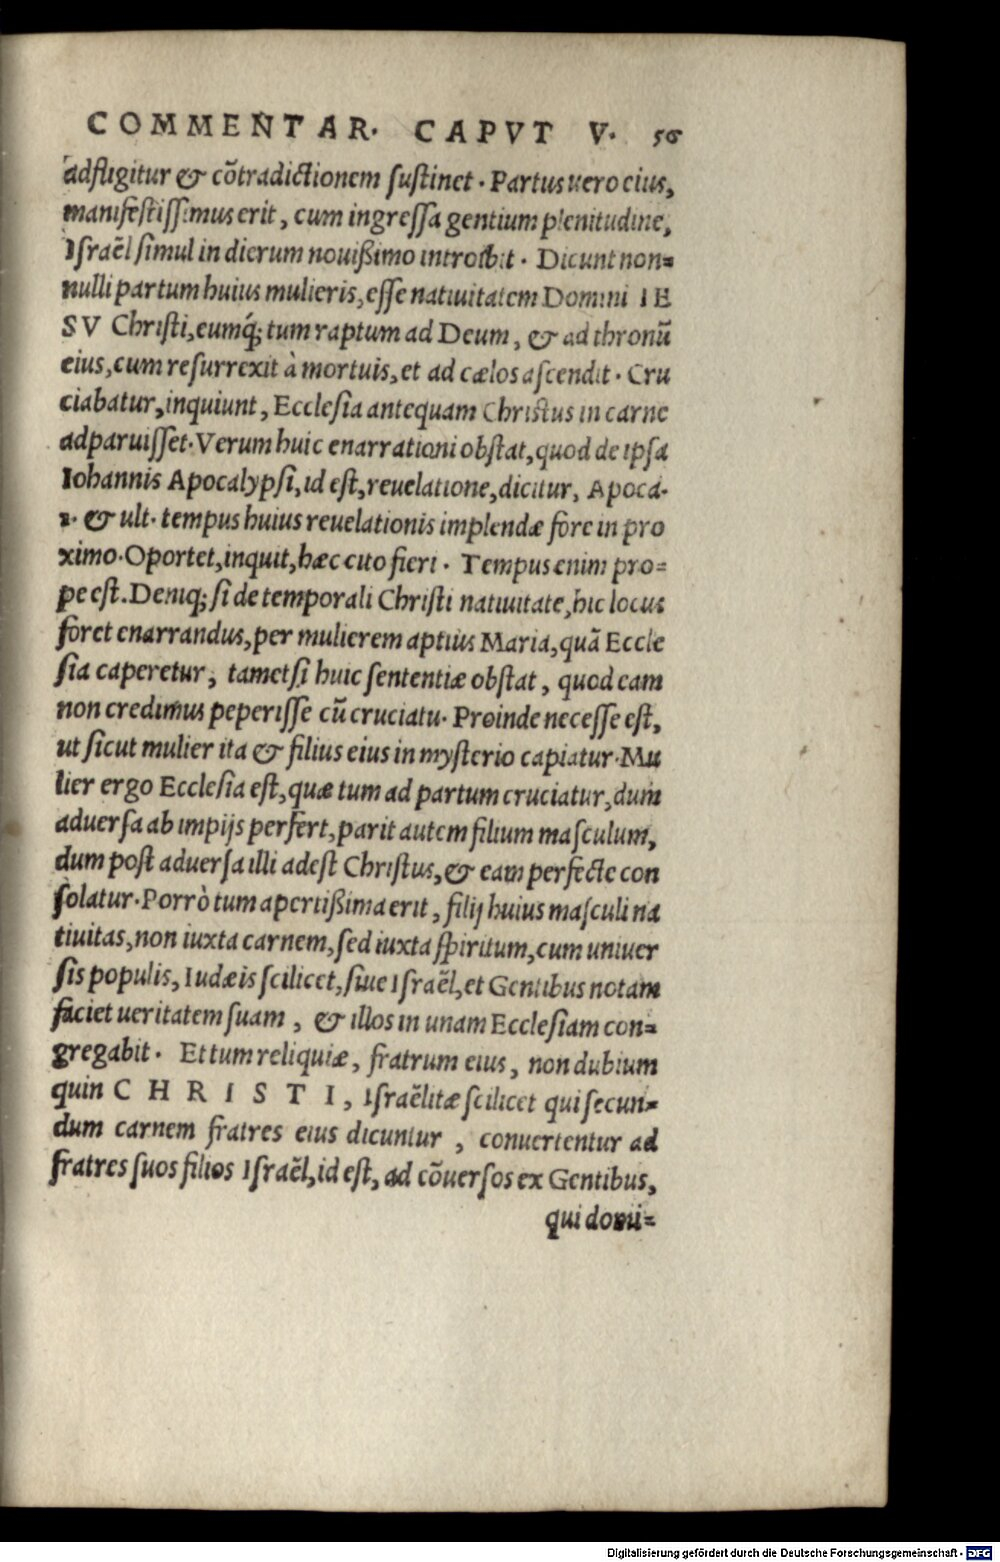 COMMENTAR. CAPVT V. 56
adfligitur & cõtradictionem sustinet. Partus uero eius,
manifestissimus erit, cum ingressa gentium plenitudine,
Israẽl simul in dierum nouißimo introibit. Dicunt non=
nulli partum huius mulieris, esse natiuitatem Domini IE
SV Christi, eumq́; tum raptum ad Deum, & ad thronũ
eius, cum resurrexit à mortuis, et ad cælos ascendit. Cru
ciabatur, inquiunt, Ecclesia antequam Christus in carne
adparuisset. Verum huic enarrationi obstat, quod de ipsa
Iohannis Apocalypsi, id est, reuelatione, dicitur, Apoca.
1. & ult. tempus huius reuelationis implendæ fore in pro
ximo. Oportet, inquit, hæc cito fieri. Tempus enim pro=
pe est. Deniq; si de temporali Christi natiuitate, hic locus
foret enarrandus, per mulierem aptius Maria, quã Eccle
sia caperetur, tametsi huic sententiæ obstat, quod eam
non credimus peperisse cũ cruciatu. Proinde necesse est,
ut sicut mulier ita & filius eius in mysterio capiatur. Mu
lier ergo Ecclesia est, quæ tum ad partum cruciatur, dum
aduersa ab impijs perfert, parit autem filium masculum,
dum post aduersa illi adest Christus, & eam perfecte con
solatur. Porrò tum apertißima erit, filij huius masculi na
tiuitas, non iuxta carnem, sed iuxta spiritum, cum uniuer
sis populis, Iudæis scilicet, siue Israẽl, et Gentibus notam
faciet ueritatem suam, & illos in unam Ecclesiam con=
gregabit. Et tum reliquiæ, fratrum eius, non dubium
quin CHRISTI, Israẽlitæ scilicet qui secun=
dum carnem fratres eius dicuntur, conuertentur ad
fratres suos filios Israẽl, id est, ad cõuersos ex Gentibus,
qui domi=
Digitalisierung gefördert durch die Deutsche Forschungsgemeinschaft - DFG